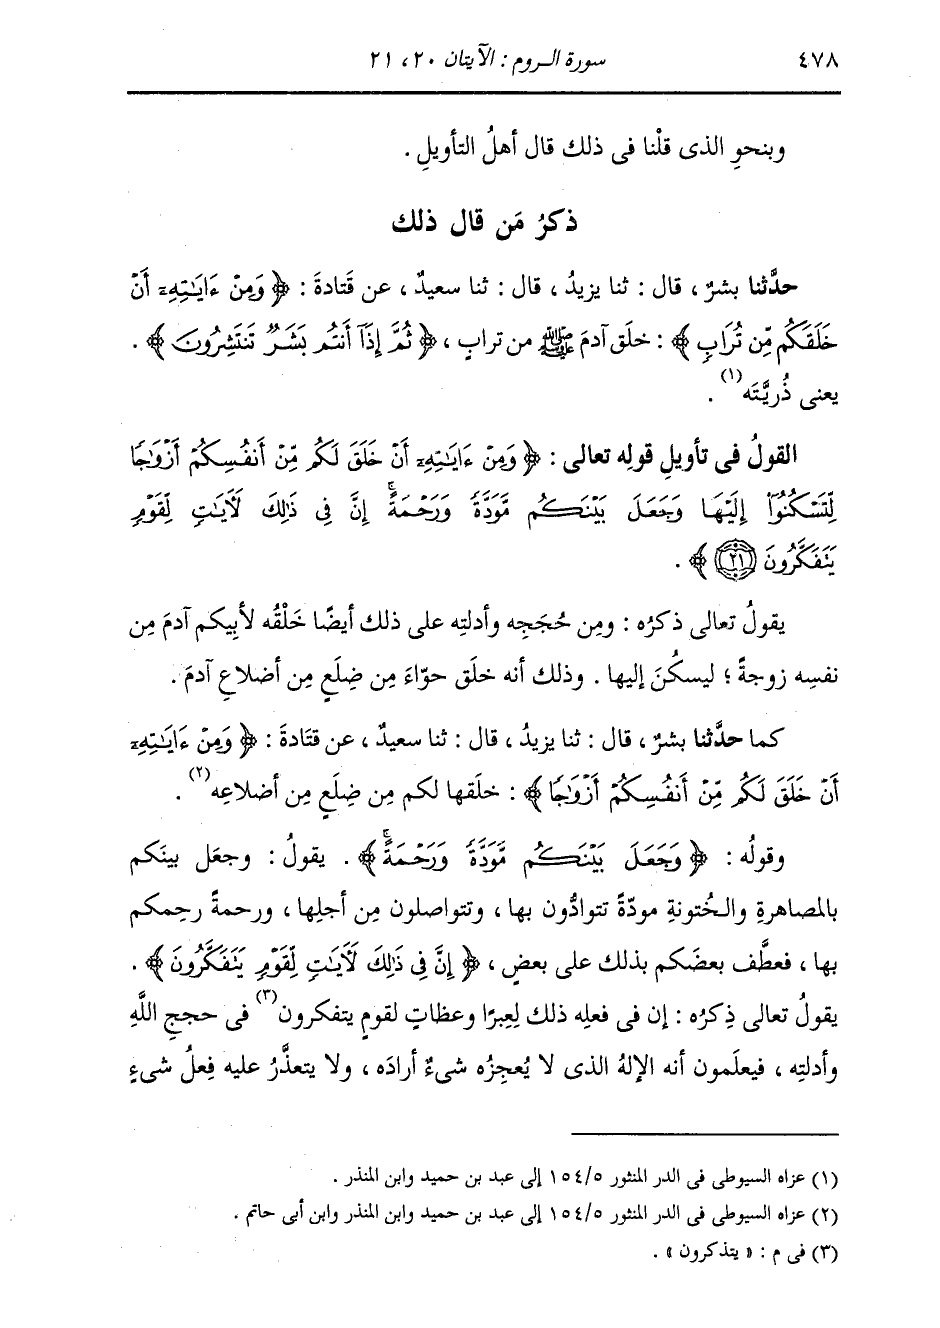 ٤٧٨ سورة الروم : الآيتان ٢٠ ، ٢١
وبنحوِ الذى قلْنا فى ذلك قال أهلُ التأويلِ .
ذكرُ مَن قال ذلك
حدَّثنا بشرٌ ، قال : ثنا يزيدُ ، قال : ثنا سعيدٌ ، عن قَتادةَ : ﴿ وَمِنْ ءَايَٰتِهِۦٓ أَنْ
خَلَقَكُم مِّن تُرَابٍ ﴾ : خلَق آدمَ ﷺ من ترابٍ ، ﴿ ثُمَّ إِذَآ أَنتُم بَشَرٌ تَنتَشِرُونَ ﴾ .
يعنى ذُريَّتَه(١) .
القولُ فى تأويلِ قولِه تعالى : ﴿ وَمِنْ ءَايَٰتِهِۦٓ أَنْ خَلَقَ لَكُم مِّنْ أَنفُسِكُمْ أَزْوَٰجًا
لِّتَسْكُنُوٓا۟ إِلَيْهَا وَجَعَلَ بَيْنَكُم مَّوَدَّةً وَرَحْمَةً ۚ إِنَّ فِى ذَٰلِكَ لَءَايَٰتٍ لِّقَوْمٍ
يَتَفَكَّرُونَ ٢١ ﴾ .
يقولُ تعالى ذكرُه : ومِن حُجَجِه وأدلتِه على ذلك أيضًا خَلْقُه لأبيكم آدمَ مِن
نفسِه زوجةً ؛ ليسكُنَ إليها . وذلك أنه خلَق حوّاءَ مِن ضِلَعٍ مِن أضلاعِ آدمَ .
كما حدَّثنا بشرٌ ، قال : ثنا يزيدُ ، قال : ثنا سعيدٌ ، عن قتَادةَ : ﴿ وَمِنْ ءَايَٰتِهِۦٓ
أَنْ خَلَقَ لَكُم مِّنْ أَنفُسِكُمْ أَزْوَٰجًا ﴾ : خلَقها لكم مِن ضِلَعٍ مِن أضلاعِه(٢) .
وقولُه : ﴿ وَجَعَلَ بَيْنَكُم مَّوَدَّةً وَرَحْمَةً ۚ ﴾ . يقولُ : وجعَل بينَكم
بالمصاهرةِ والخُتونةِ مودّةً تتوادُّون بها ، وتتواصلون مِن أجلِها ، ورحمةً رحِمكم
بها ، فعطَّف بعضَكم بذلك على بعضٍ ، ﴿ إِنَّ فِى ذَٰلِكَ لَءَايَٰتٍ لِّقَوْمٍ يَتَفَكَّرُونَ ﴾ .
يقولُ تعالى ذِكرُه : إن فى فعلِه ذلك لِعِبرًا وعظاتٍ لقومٍ يتفكرون(٣) فى حججِ اللَّهِ
وأدلتِه ، فيعلَمون أنه الإلهُ الذى لا يُعجِزُه شىءٌ أرادَه ، ولا يتعذَّرُ عليه فِعلُ شىءٍ
(١) عزاه السيوطى فى الدر المنثور ١٥٤/٥ إلى عبد بن حميد وابن المنذر .
(٢) عزاه السيوطى فى الدر المنثور ١٥٤/٥ إلى عبد بن حميد وابن المنذر وابن أبى حاتم .
(٣) فى م : « يتذكرون » .